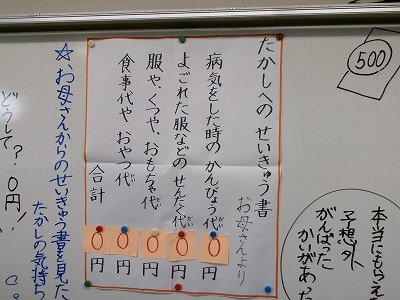 500
たかしへのせいきゅう書
お母さんより
病気をした時のかんびょう代 0円
よごれた服などのせんたく代 0円
服や、くつや、おもちゃ代 0円
食事代や おやつ代 0円
合計 0円
本当にもらえ
予想外
がんばった
かいがあっ
☆お母さんからのせいきゅう書を見た
たかしの気持ち
どうして?
0円!